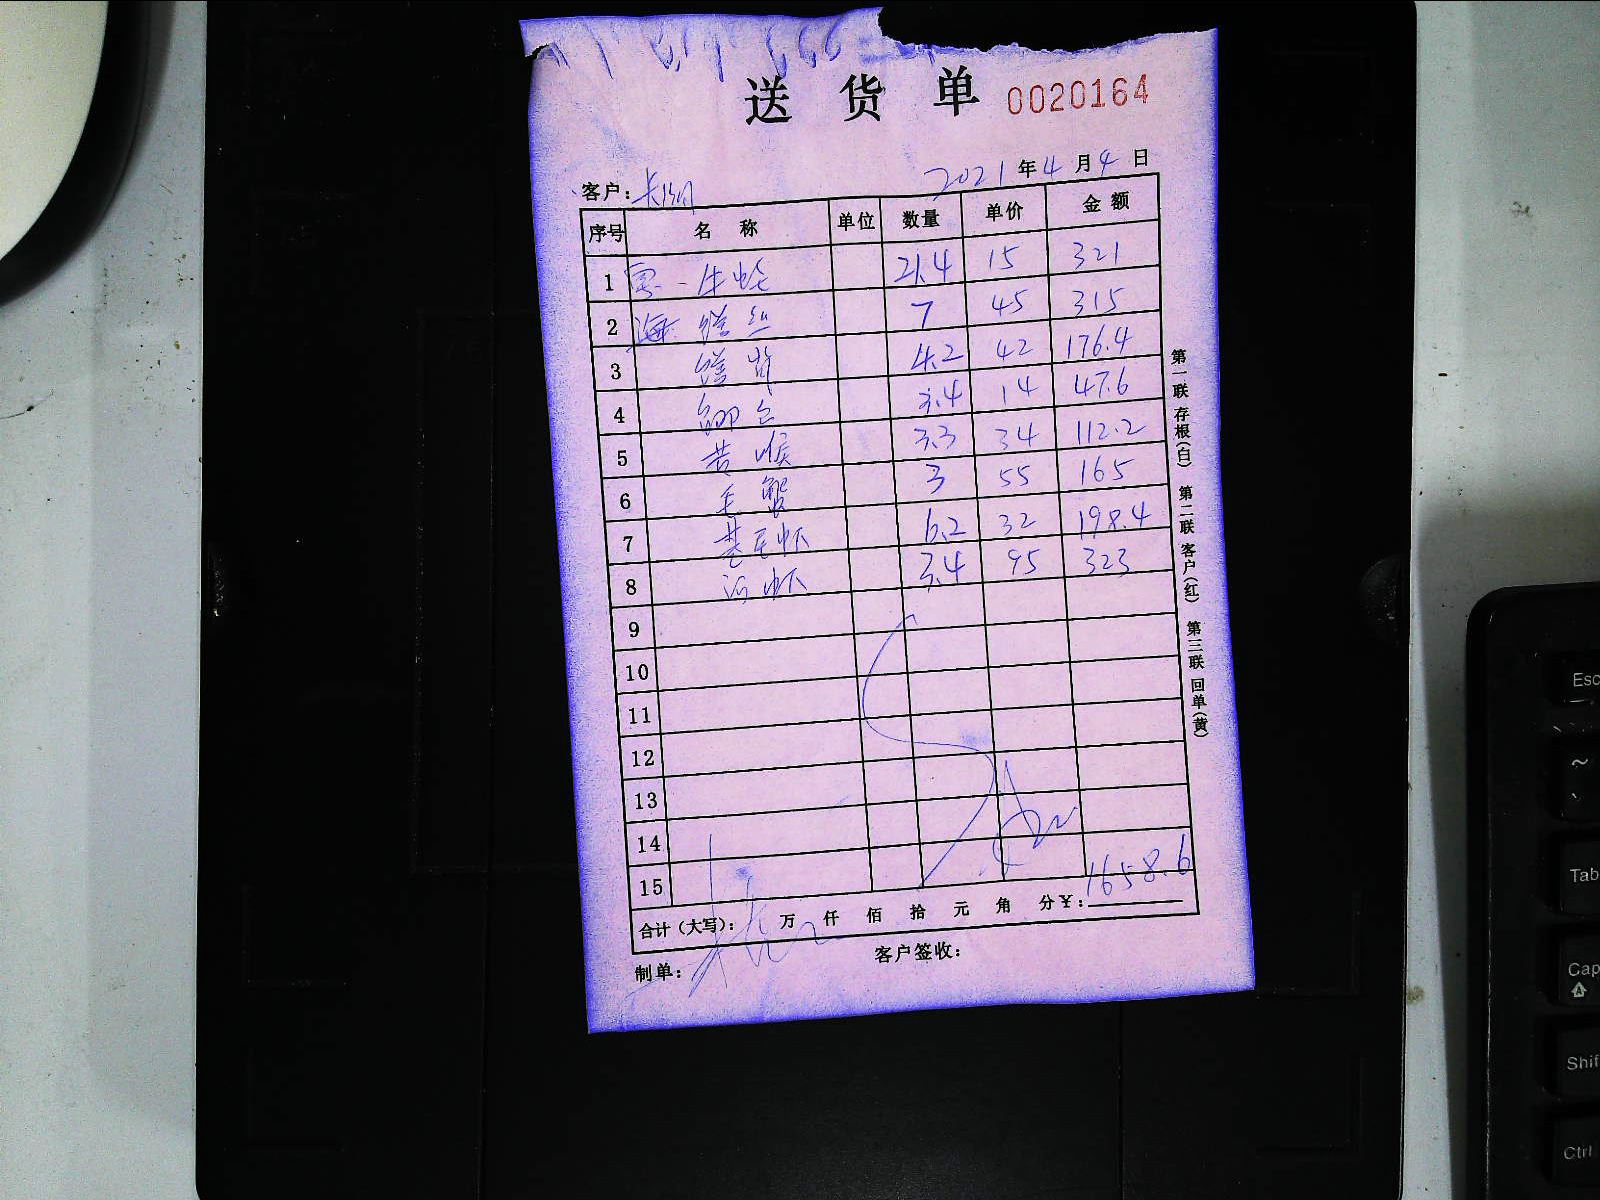 送 货 单 0020164
客户: 2021 年 4 月 4 日
序号 名 称 单位 数量 单价 金 额
1 21.4 15 321
2 海 丝 7 45 315
3 4.2 42 176.4
4 3.4 14 47.6
5 黄 喉 3.3 34 112.2
6 毛 蟹 3 55 165
7 基围虾 6.2 32 198.4
8 河虾 3.4 95 323
9
10
11
12
13
14
15
合计(大写): 万 仟 佰 拾 元 角 分¥: 1658.6
制单: 客户签收:
第一联 存根(白) 第二联 客户(红) 第三联 回单(黄)
Esc
~
Tab
Cap
Shif
Ctrl